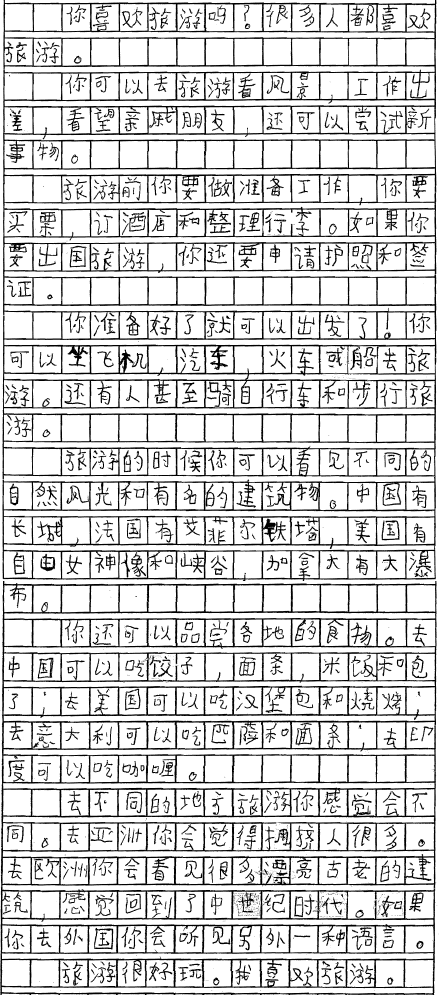 你喜欢旅游吗？很多人都喜欢
旅游。
你可以去旅游看风景，工作出
差，看望亲戚朋友，还可以尝试新
事物。
旅游前你要做准备工作，你要
买票，订酒店和整理行李。如果你
要出国旅游，你还要申请护照和签
证。
你准备好了就可以出发了！你
可以坐飞机，汽车，火车或船去旅
游。还有人甚至骑自行车和步行旅
游。
旅游的时候你可以看见不同的
自然风光和有名的建筑物。中国有
长城，法国有艾菲尔铁塔，美国有
自由女神像和峡谷，加拿大有大瀑
布。
你还可以品尝各地的食物。去
中国可以吃饺子，面条，米饭和包
子；去美国可以吃汉堡包和烧烤；
去意大利可以吃匹萨和面条；去印
度可以吃咖喱。
去不同的地方旅游你感觉会不
同。去亚洲你会觉得拥挤人很多。
去欧洲你会看见很多漂亮古老的建
筑，感觉回到了中世纪时代。如果
你去外国你会听见另外一种语言。
旅游很好玩。我喜欢旅游。